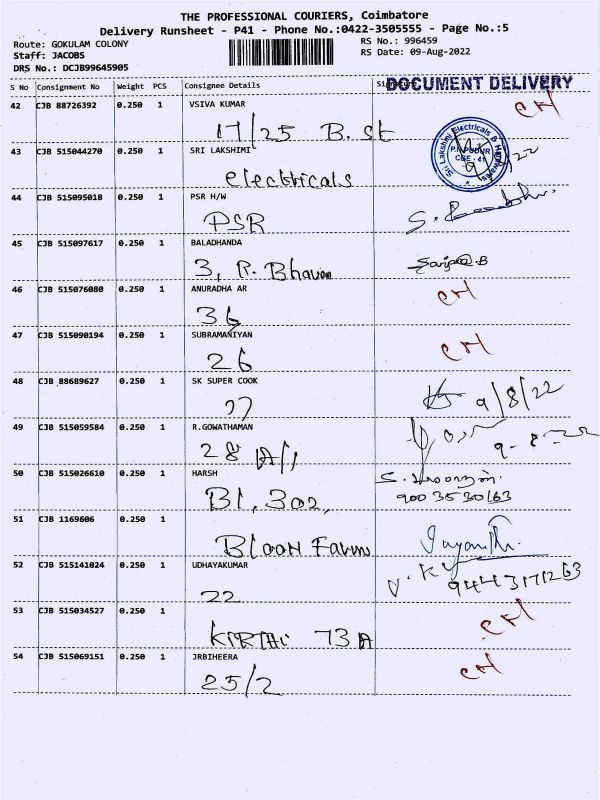 THE PROFESSIONAL COURIERS, Coimbatore
Delivery Runsheet - P41 - Phone No.:0422-3505555 - Page No.:5
Route: GOKULAM COLONY RS No.: 996459
Staff: JACOBS RS Date: 09-Aug-2022
DRS No.: DCJB99645905
S No Consignment No Weight PCS Consignee Details Si DOCUMENT DELIVERY
42 CJB 88726392 0.250 1 VSIVA KUMAR
17/25 B.St
43 CJB 515044270 0.250 1 SRI LAKSHIMI
Sri Lakshmi Electricals & Hardwares
P.N.PUDUR
CBE - 41
electricals
44 CJB 515095018 0.250 1 PSR H/W
PSR
45 CJB 515097617 0.250 1 BALADHANDA
3, R. Bhavan
46 CJB 515076080 0.250 1 ANURADHA AR
36
47 CJB 515090194 0.250 1 SUBRAMANIYAN
26
48 CJB 88689627 0.250 1 SK SUPER COOK
77 9/8/22
49 CJB 515059584 0.250 1 R.GOWATHAMAN
28 A/1 9-8-22
50 CJB 515026610 0.250 1 HARSH
B1, 302, 9003530163
51 CJB 1169606 0.250 1
Bloom Farm Jayanthi
52 CJB 515141024 0.250 1 UDHAYAKUMAR
22 9443171263
53 CJB 515034527 0.250 1
KIRTHI 73A
54 CJB 515069151 0.250 1 JRBIHEERA
25/2